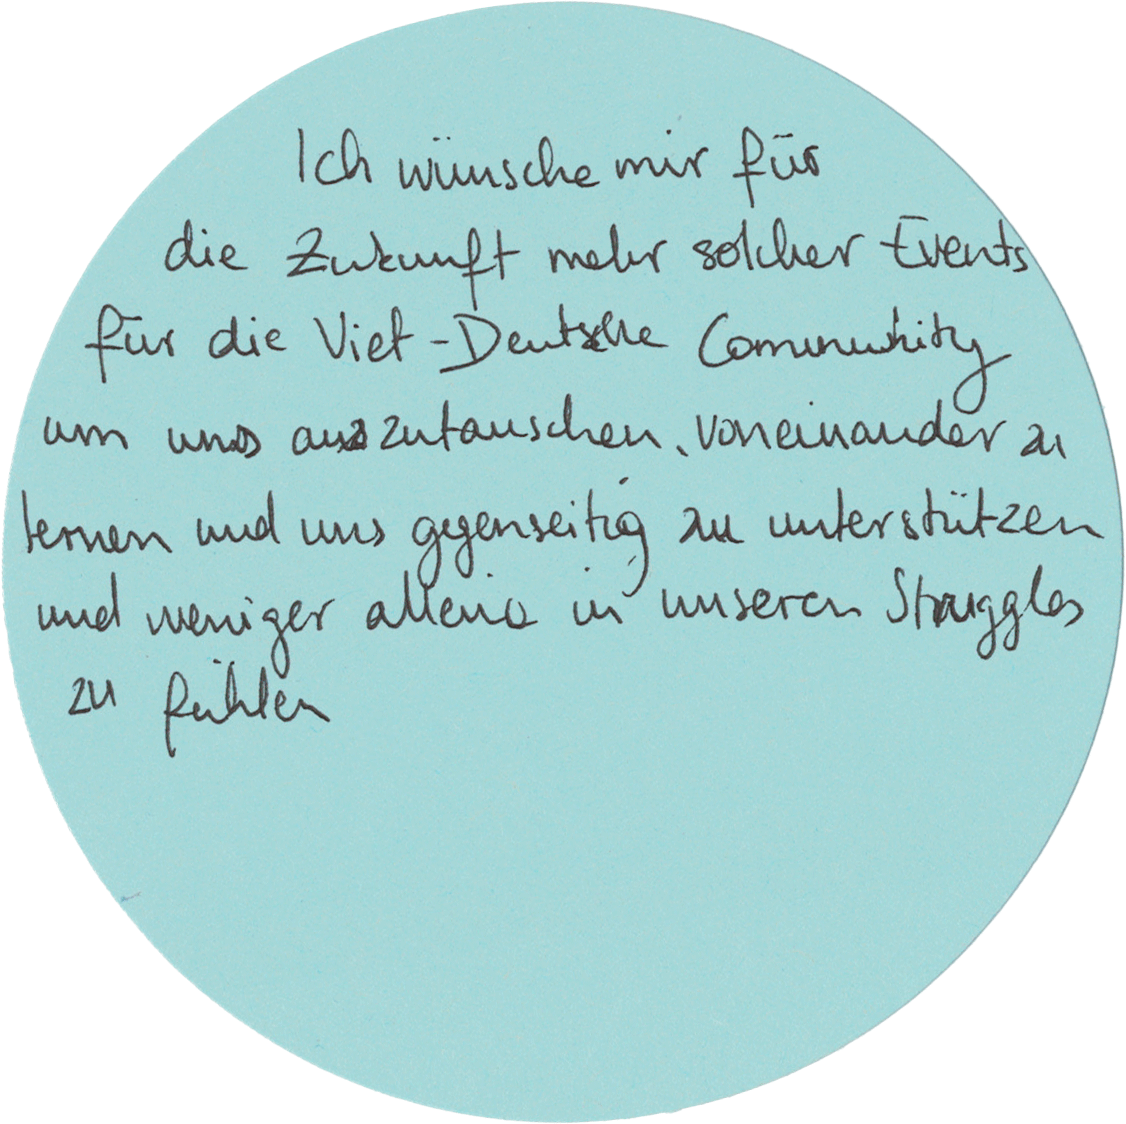 Ich wünsche mir für
die Zukunft mehr solcher Events
für die Viet-Deutsche Community
um uns auszutauschen, voneinander zu
lernen und uns gegenseitig zu unterstützen
und weniger allein in unseren Struggles
zu fühlen